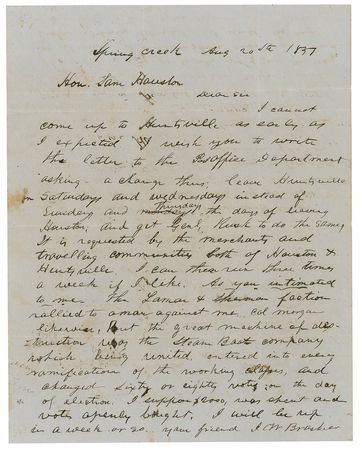 Spring Creek Aug 20th 1857
Hon. Sam Houston
Dear Sir
I cannot
come up to Huntsville as early as
I expected I wish you to write
the letter to the Post Office Department
asking a change thus, leave Huntsville
on Saturdays and Wednesdays instead of
Tuesdays and Thursday the days of leaving
Houston, and get Genl. Rusk to do the same,
It is requested by the merchants and
travelling communities both of Houston &
Huntsville. I can then run three times
a week if I like. As you intimated
to me. The Lamar & Sherman faction
rallied to a man against me, Col Morgan
likewise, But the great machine of des-
truction was the Steam Boat company
which being united, entered into every
ramification of the working classes, and
changed sixty or eighty votes in the day
of election. I suppose $2000, was spent and
votes openly bought, I will be up
in a week or so. your friend J W Brashear